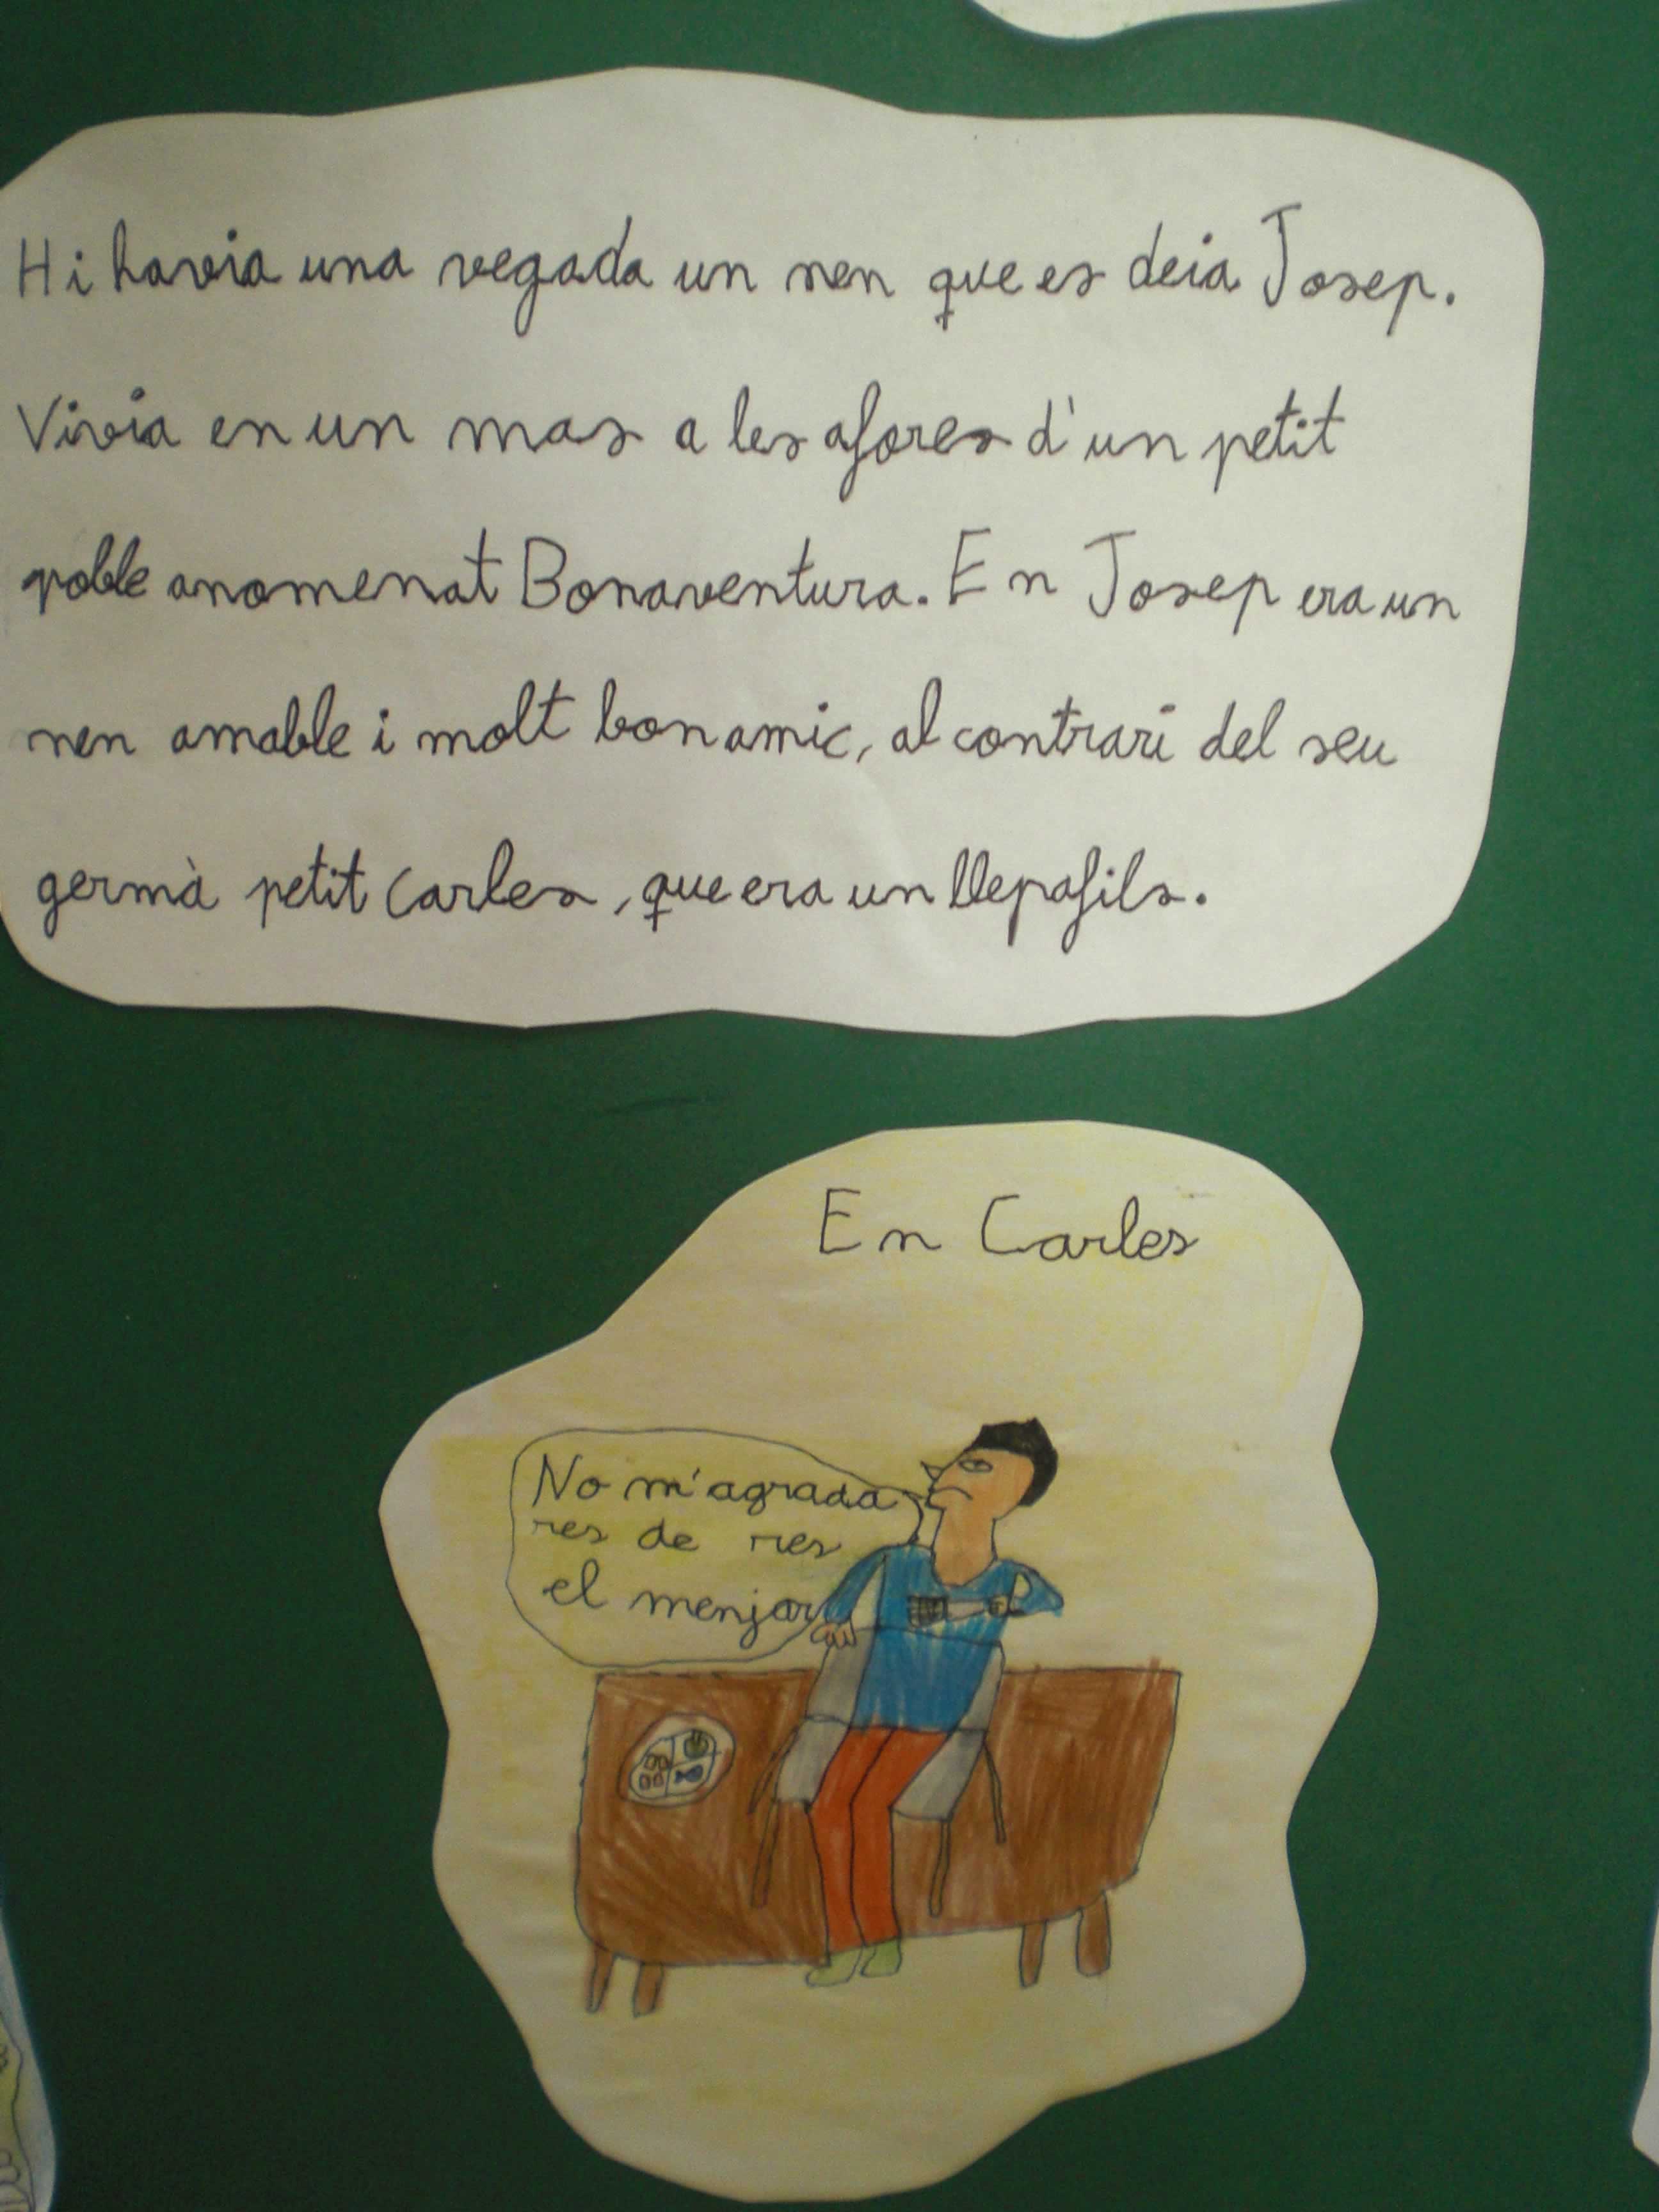 Hi havia una vegada un nen que es deia Josep.
Vivia en un mas a les afores d'un petit
poble anomenat Bonaventura. En Josep era un
nen amable i molt bon amic, al contrari del seu
germà petit Carles, que era un llepafils.
En Carles
No m'agrada
res de res
el menjar